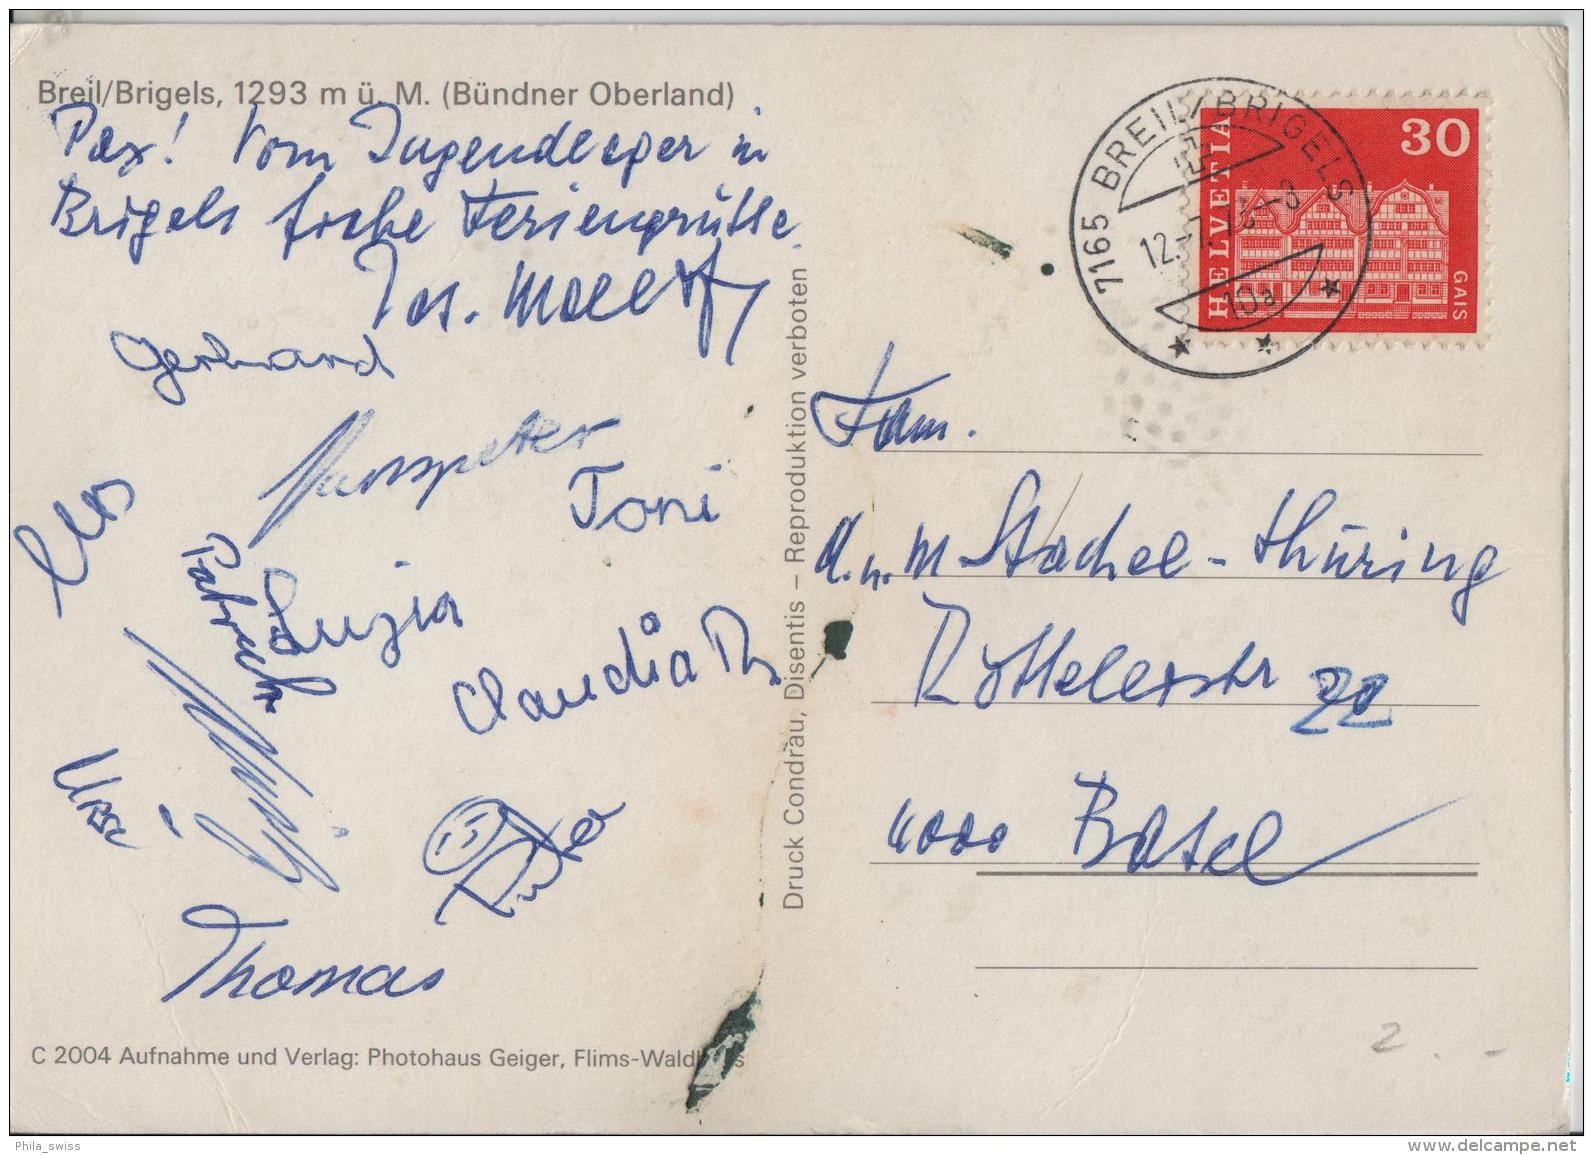 Breil/Brigels, 1293 m ü. M. (Bündner Oberland)
Pax! Vom Jugendlager in
Brigels frohe Feriengrüsse
Jos.
Gerhard
Hanspeter
Toni
Urs
Patrick
Luzia
Claudia Th.
Ursi
Thomas
C 2004 Aufnahme und Verlag: Photohaus Geiger, Flims-Waldhaus
Druck Condrau, Disentis – Reproduktion verboten
7165 BREIL/BRIGELS
12.-7.7 -8
10a
HELVETIA
30
GAIS
Fam.
A. u. M Stachel-Thüring
Röttelerstr 22
4000 Basel
2.-
Phila_swiss
www.delcampe.net